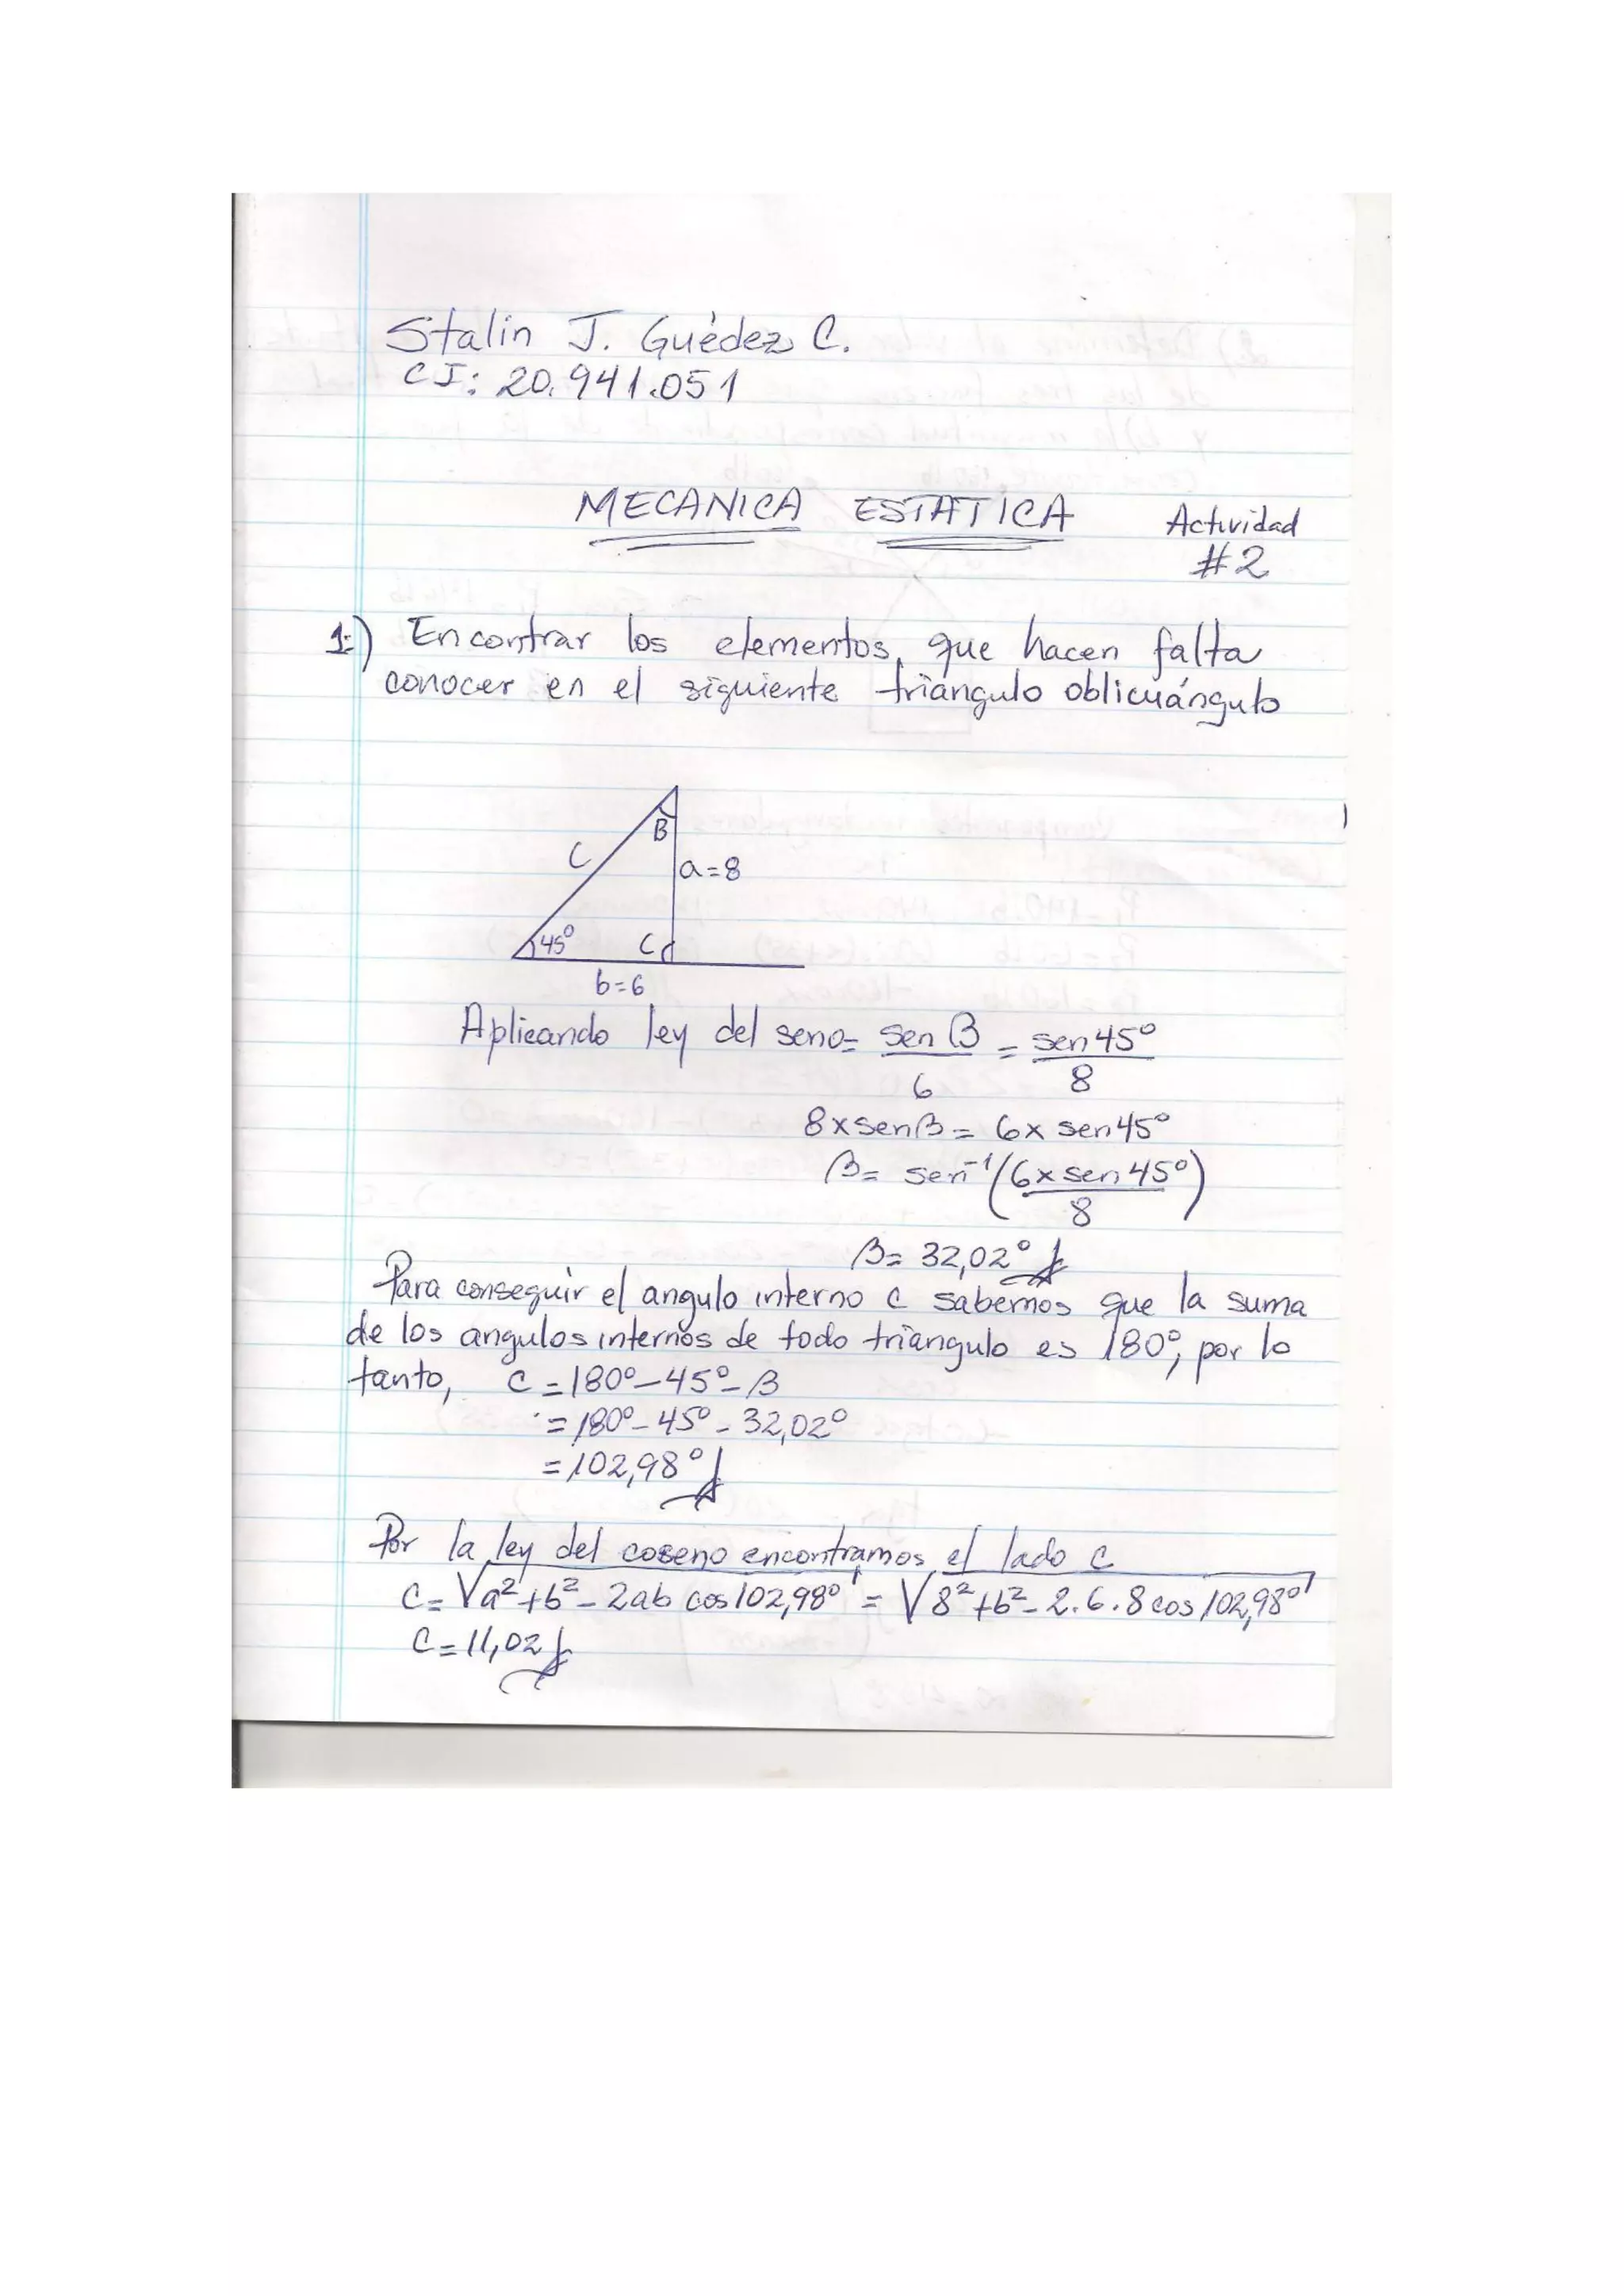 Stalin J. Guédez C.
CI: 20.941.051
MECANICA ESTATICA
Actividad
#2
1:) Encontrar los elementos, que hacen falta
conocer en el siguiente triangulo oblicuángulo
B
C
a=8
45°
C
b=6
Aplicando ley del seno= sen B/6 = sen 45°/8
8 x sen β = 6 x sen 45°
β= sen⁻¹(6 x sen 45°/8)
β= 32,02°
Para conseguir el angulo interno c sabemos que la suma
de los angulos internos de todo triangulo es 180°, por lo
tanto, C = 180° - 45° - β
= 180° - 45° - 32,02°
= 102,98°
Por la ley del coseno encontramos el lado c
C= √a²+b²-2ab cos 102,98° = √8²+b²-2.6.8 cos 102,98°
C= 11,02